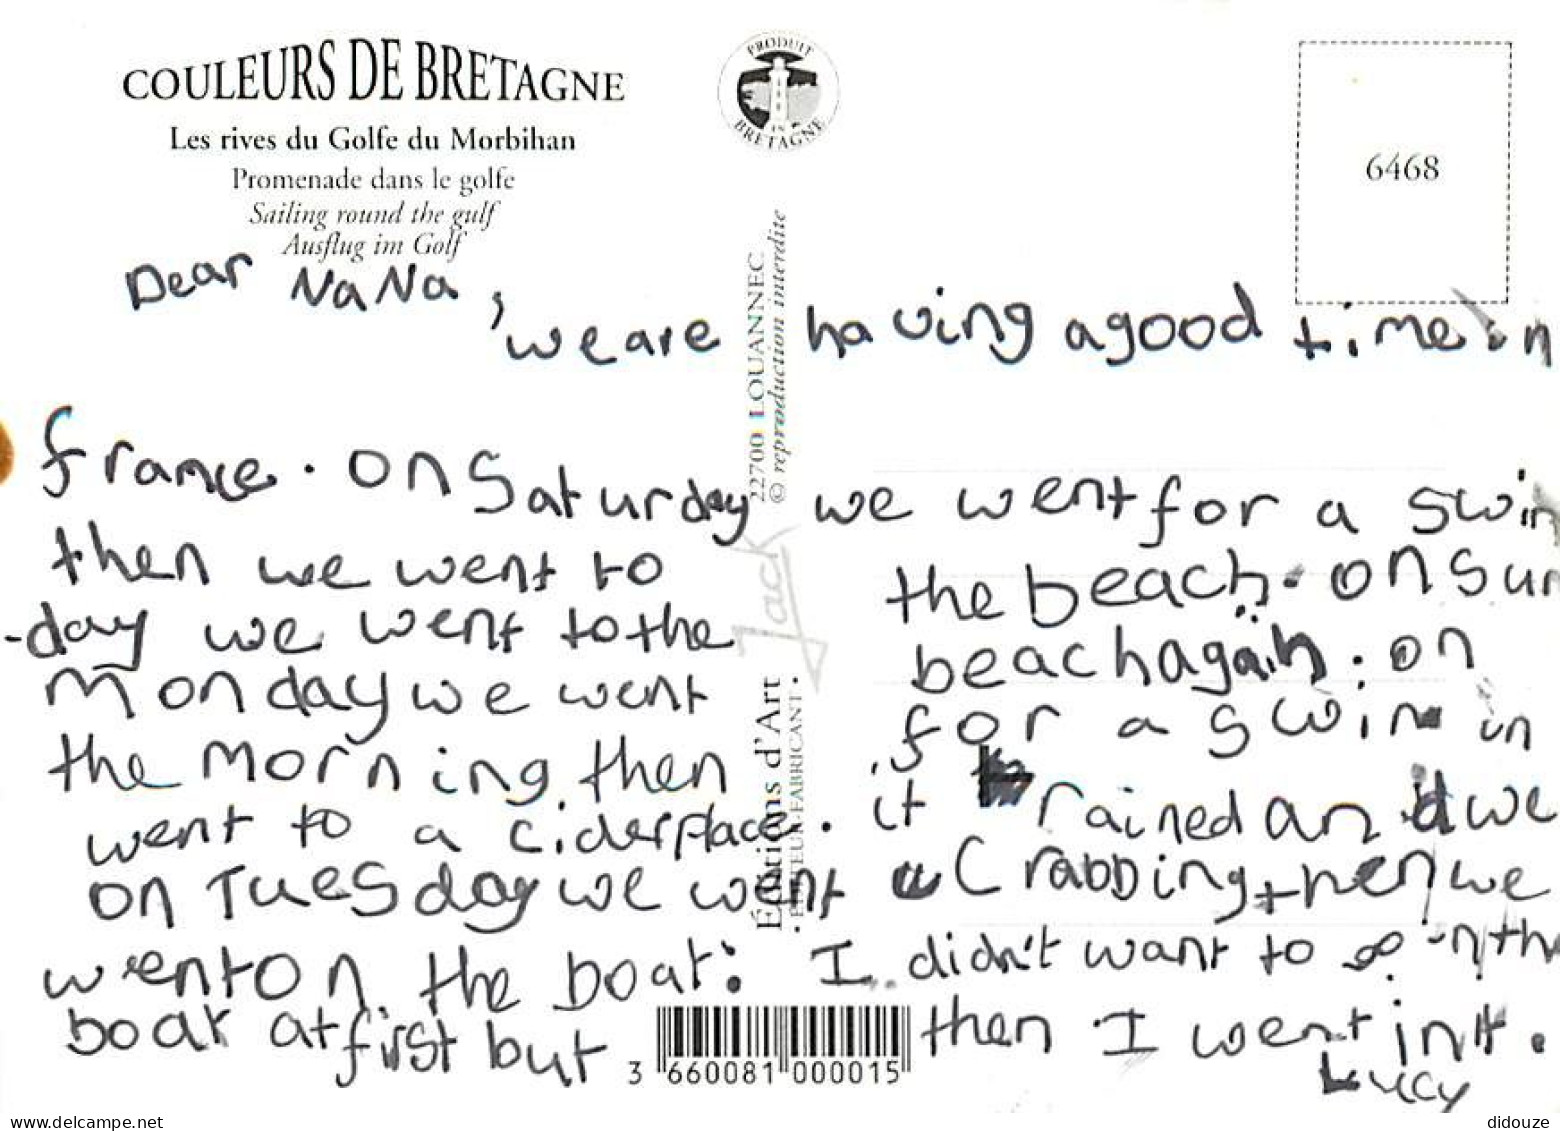 COULEURS DE BRETAGNE
Les rives du Golfe du Morbihan
Promenade dans le golfe
Sailing round the gulf
Ausflug im Golf
PRODUIT EN BRETAGNE
6468
Dear NaNa, we are having a good time in
france. on Saturday we went for a swim
then we went to the beach. on Sun
-day we went to the beach again. on
Monday we went for a swim in
the Morning, then it rained and we
went to a ciderplace.
on Tuesday we went Crabbing, then we
went on the boat. I didn't want to go in the
boat at first but then I went in it.
Lucy
22700 LOUANNEC
© reproduction interdite
Jack
Éditions d'Art
• ÉDITEUR-FABRICANT •
3 660081 000015
delcampe.net
didouze